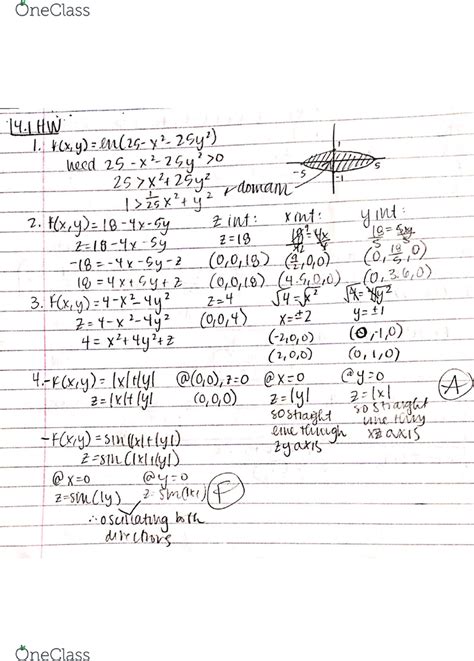 OneClass
14.1 HW
1. f(x,y) = ln(25-x²-25y²)
need 25-x²-25y²>0
25 > x²+25y²
1 > 1/25 x² + y²
domain
1
-5
5
-1
2. f(x,y) = 18-4x-5y
z = 18-4x-5y
-18 = -4x-5y-z
18 = 4x+5y+z
z int:
z=18
(0,0,18)
(0,0,18)
x int:
(4.5,0,0)
y int:
(0, 18/5, 0)
(0, 3.6, 0)
3. f(x,y) = 4-x²-4y²
z = 4-x²-4y²
4 = x²+4y²+z
z=4
(0,0,4)
√4 = √x²
x=±2
(-2,0,0)
(2,0,0)
y=±1
(0,-1,0)
(0,1,0)
4. -f(x,y) = |x|+|y|
z=|x|+|y|
@(0,0), z=0
(0,0,0)
@x=0
z=|y|
so straight
line through
zy axis
@y=0
z=|x|
so straight
line thru
xz axis
A
-f(x,y) = sin(|x|+|y|)
z=sin(|x|+|y|)
@x=0
z=sin(|y|)
@y=0
z=sin(|x|)
F
∴ oscillating both
directions
OneClass